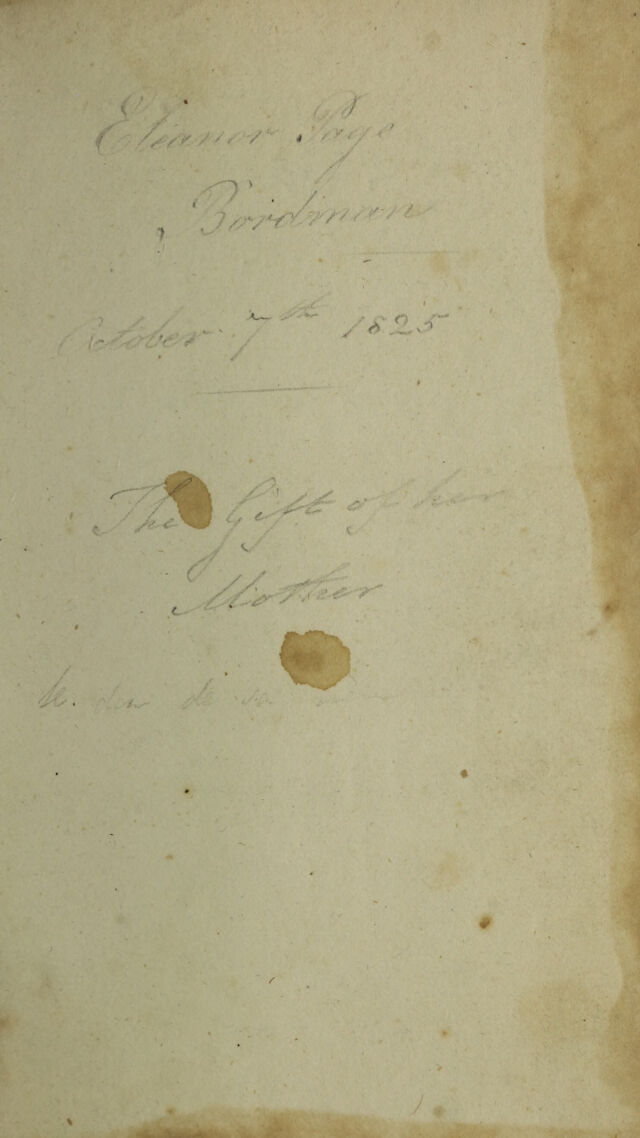 Eleanor Page
Bordman
October 7th 1825
The Gift of her
Mother
de